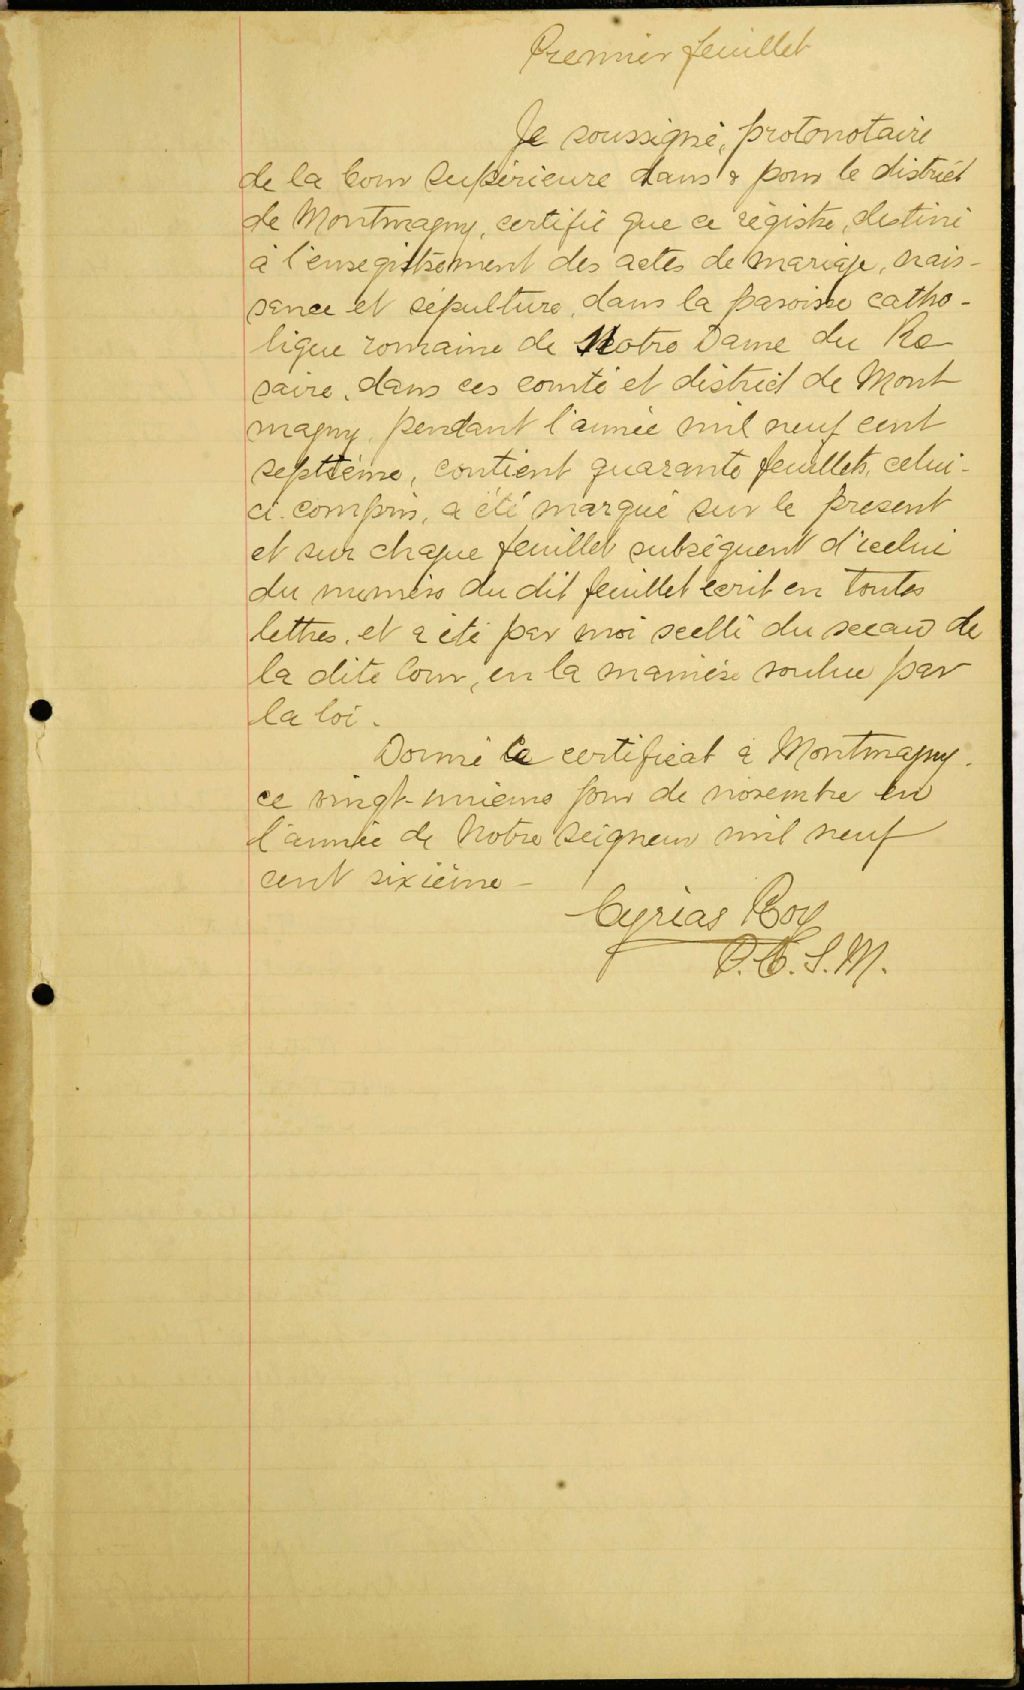 Premier feuillet
Je soussigné, protonotaire
de la Cour Supérieure dans & pour le district
de Montmagny, certifie que ce régistre, destiné
à l'enregistrement des actes de mariage, nais-
sance et sépulture, dans la paroisse catho-
lique romaine de Notre Dame du Ro
saire, dans ces comté et district de Mont
magny, pendant l'année mil neuf cent
septième, contient quarante feuillets, celui-
ci compris, a été marqué sur le present
et sur chaque feuillet subséquent d'icelui
du numéro du dit feuillet ecrit en toutes
lettres, et a été par moi scellé du sceau de
la dite Cour, en la manière voulue par
la loi.
Donné ce certificat à Montmagny.
ce vingt-unième jour de novembre en
l'année de Notre Seigneur mil neuf
cent sixième -
Cyrias Roy
P.C.S.M.